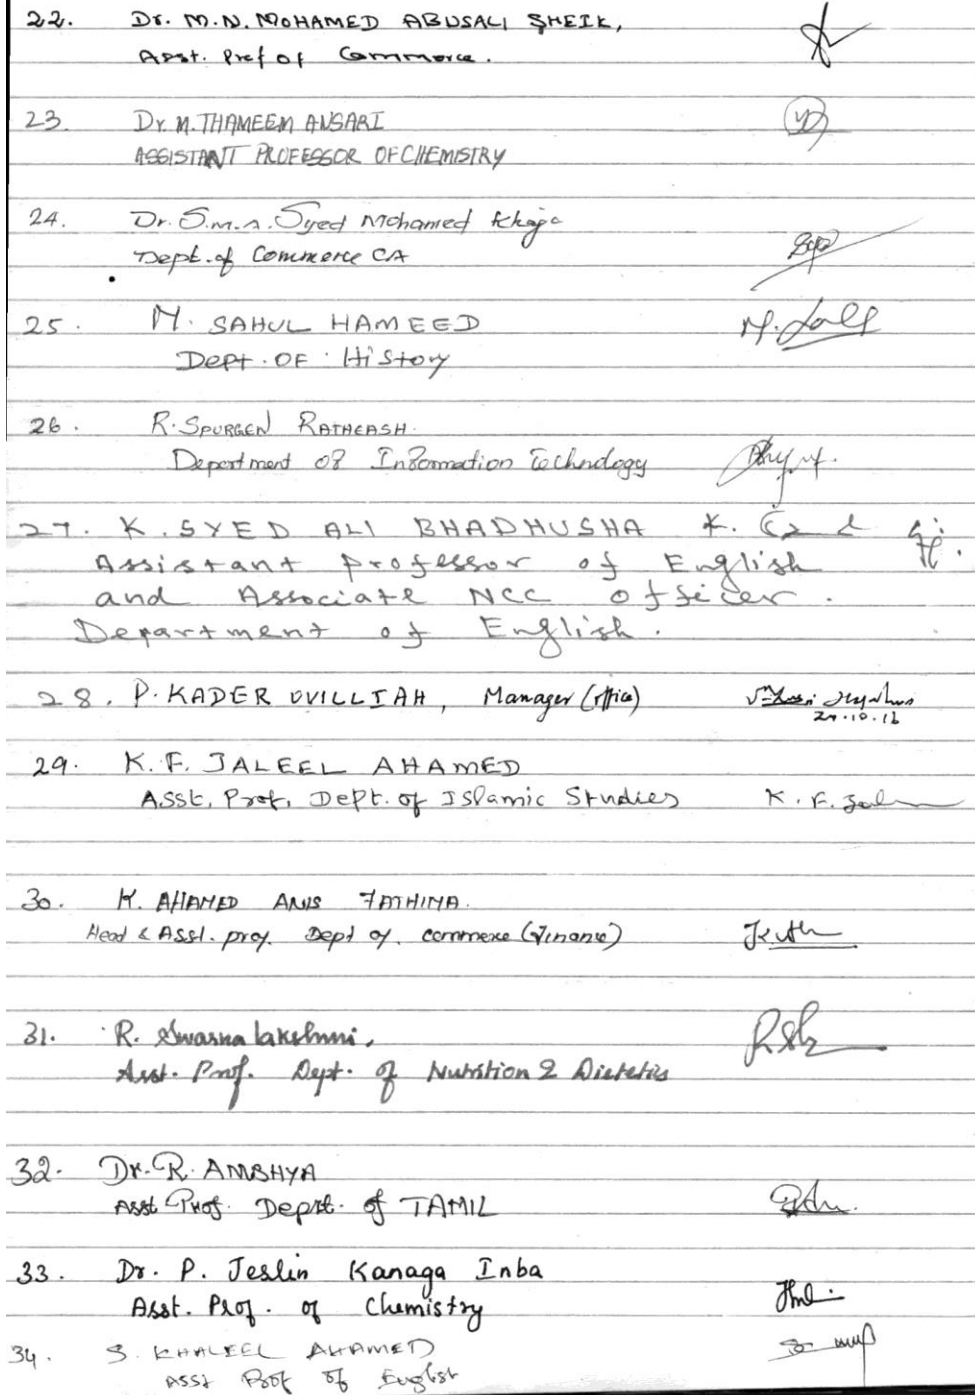 22. Dr. M.N. MOHAMED ABUSALI SHEIK,
Asst. Prof of Commerce.
23. Dr. M. THAMEEM ANSARI
ASSISTANT PROFESSOR OF CHEMISTRY
24. Dr. S.M.A. Syed Mohamed Khaja
Dept. of Commerce CA
25. M. SAHUL HAMEED M. Sall
Dept. OF History
26. R. SPURGEN RATHEASH.
Department of Information Technology
27. K. SYED ALI BHADHUSHA K.
Assistant Professor of English
and Associate NCC officer.
Department of English.
28. P. KADER UVILLIAH, Manager (office)
29. K. F. JALEEL AHAMED
Asst. Prof. Dept. of Islamic Studies K. F. Jal
30. K. AHAMED ANIS FATHIMA.
Head & Asst. prof. Dept of. commerce (Finance)
31. R. Swarna lakshmi,
Asst. Prof. Dept. of Nutrition & Dietetis
32. Dr. R. ANUSHYA
Asst Prof. Deprt. of TAMIL
33. Dr. P. Jeslin Kanaga Inba
Asst. Prof. of Chemistry
34. S. KHALEEL AHAMED
Asst Prof of English